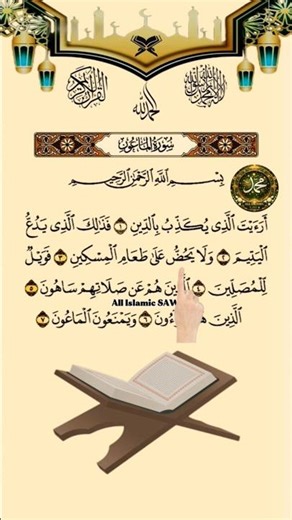 القرآن الكريم
الحمد لله
لا إله إلا الله محمد رسول الله
سورة الماعون
بسم الله الرحمن الرحيم
محمد
أَرَءَيْتَ الَّذِى يُكَذِّبُ بِالدِّينِ ١ فَذَٰلِكَ الَّذِى يَدُعُّ
الْيَتِيمَ ٢ وَلَا يَحُضُّ عَلَىٰ طَعَامِ الْمِسْكِينِ ٣ فَوَيْلٌ
لِّلْمُصَلِّينَ ٤ الَّذِينَ هُمْ عَن صَلَاتِهِمْ سَاهُونَ ٥
All Islamic SAW
الَّذِينَ هُمْ يُرَاءُونَ ٦ وَيَمْنَعُونَ الْمَاعُونَ ٧